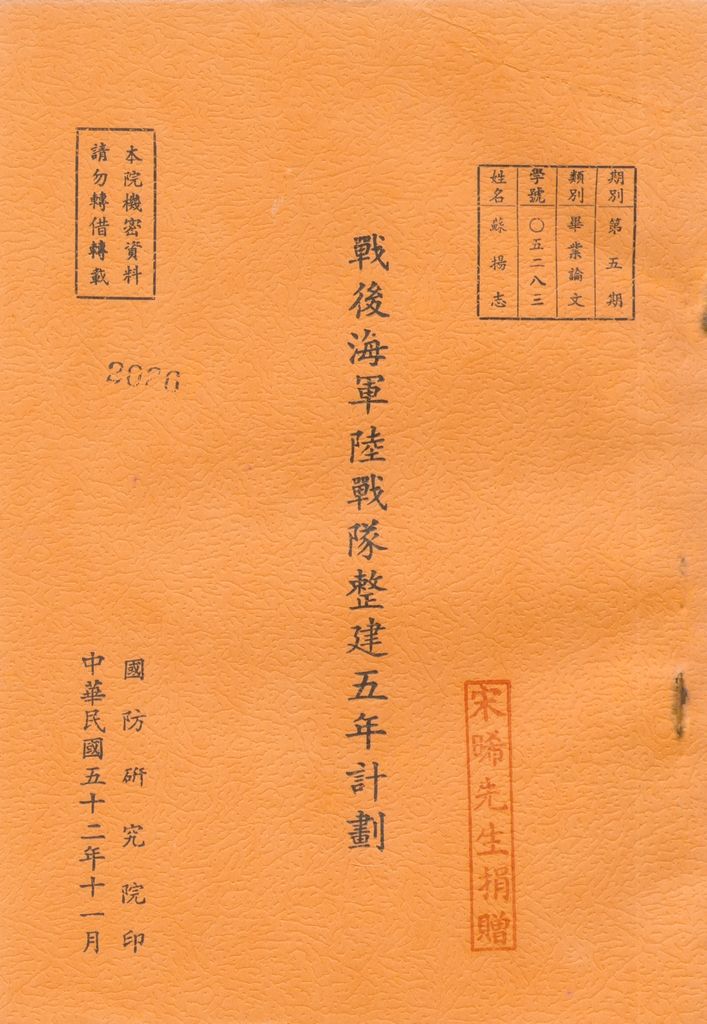 期別 第五期
類別 畢業論文
學號 〇五二八三
姓名 蘇揚志
戰後海軍陸戰隊整建五年計劃
宋晞先生捐贈
本院機密資料
請勿轉借轉載
2026
國防研究院印
中華民國五十二年十一月